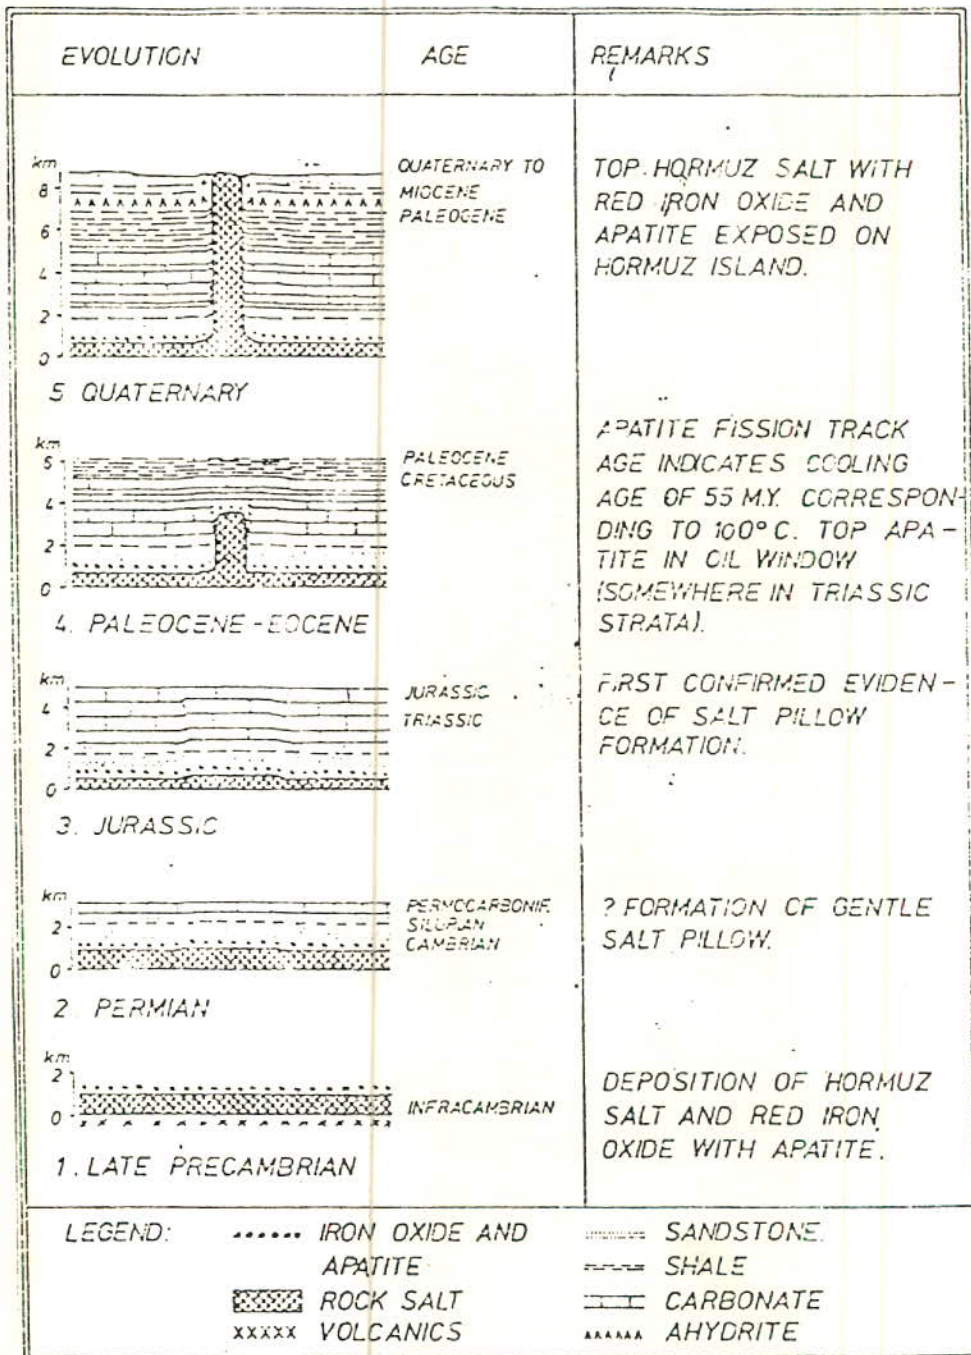 EVOLUTION AGE REMARKS
km
8
6
4
2
0
QUATERNARY TO
MIOCENE
PALEOCENE
TOP HORMUZ SALT WITH
RED IRON OXIDE AND
APATITE EXPOSED ON
HORMUZ ISLAND.
5 QUATERNARY
km
6
4
2
0
PALEOCENE
CRETACEOUS
APATITE FISSION TRACK
AGE INDICATES COOLING
AGE OF 55 M.Y. CORRESPON-
DING TO 100°C. TOP APA-
TITE IN OIL WINDOW
(SOMEWHERE IN TRIASSIC
STRATA).
4. PALEOCENE-EOCENE
km
4
2
0
JURASSIC
TRIASSIC
FIRST CONFIRMED EVIDEN-
CE OF SALT PILLOW
FORMATION.
3. JURASSIC
km
2
0
PERMOCARBONIF.
SILURIAN
CAMBRIAN
? FORMATION OF GENTLE
SALT PILLOW.
2. PERMIAN
km
2
0
INFRACAMBRIAN
DEPOSITION OF HORMUZ
SALT AND RED IRON
OXIDE WITH APATITE.
1. LATE PRECAMBRIAN
LEGEND:
IRON OXIDE AND
APATITE
ROCK SALT
VOLCANICS
SANDSTONE.
SHALE
CARBONATE
AHYDRITE